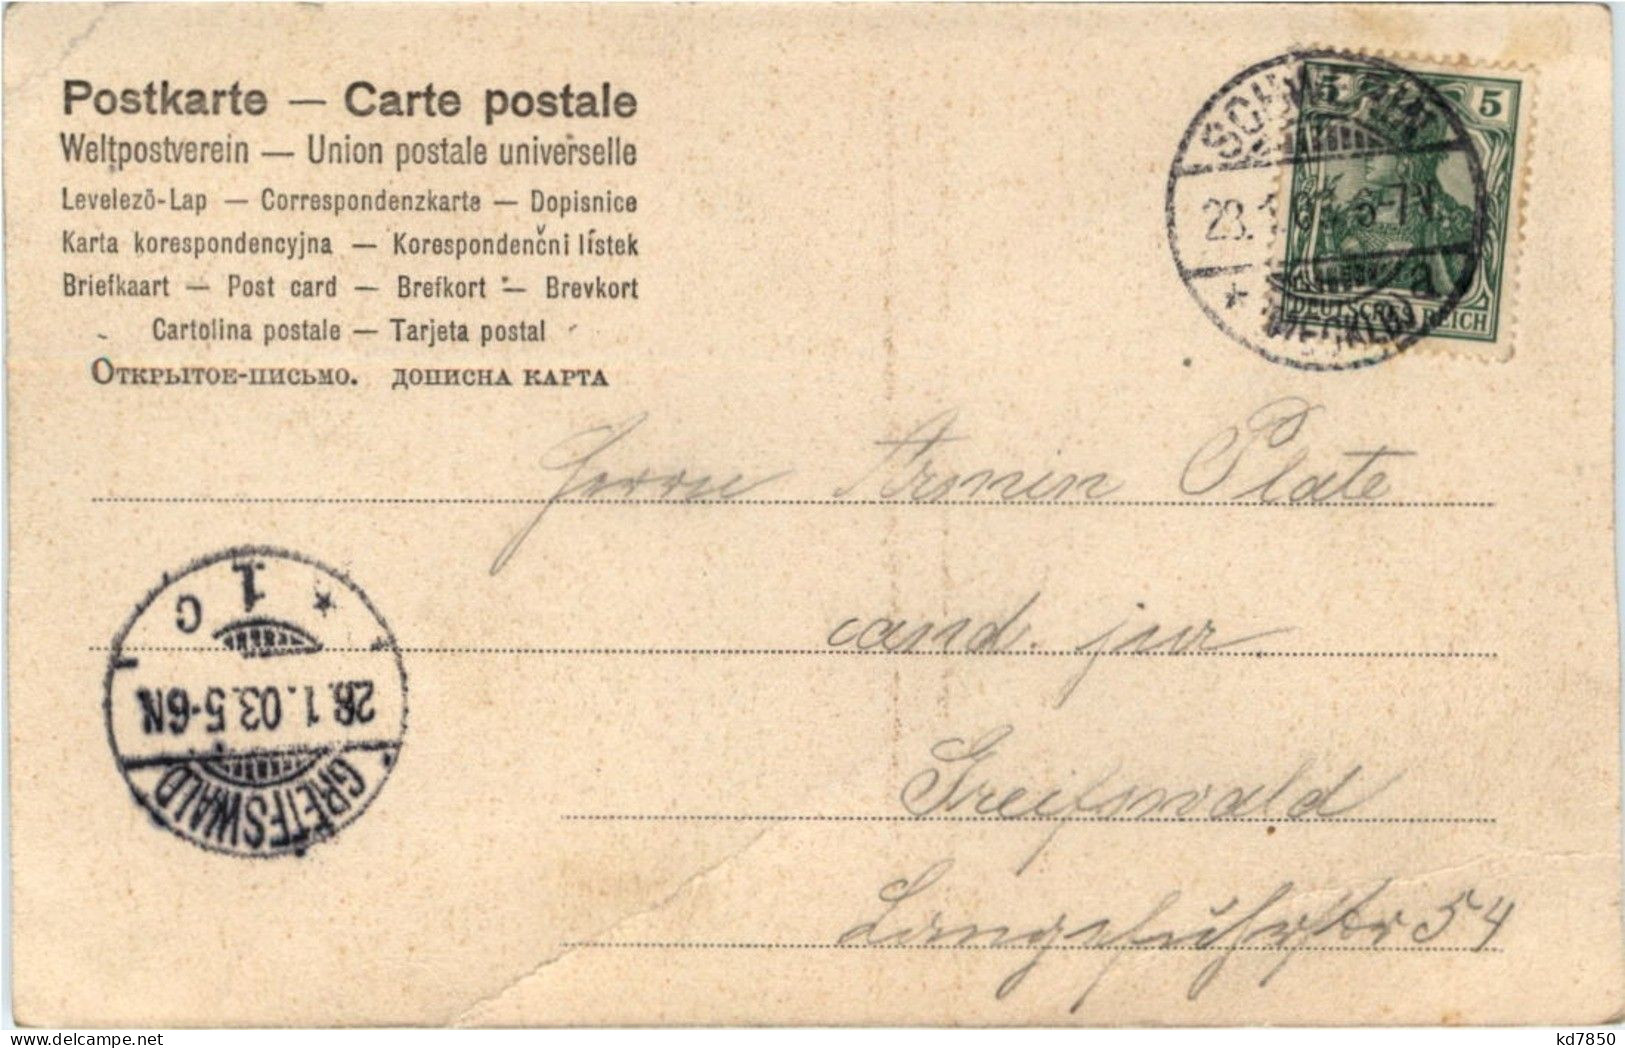 Postkarte — Carte postale
Weltpostverein — Union postale universelle
Levelezö-Lap — Correspondenzkarte — Dopisnice
Karta korespondencyjna — Korespondenčni lístek
Briefkaart — Post card — Brefkort — Brevkort
Cartolina postale — Tarjeta postal
Открытое-письмо. дописна карта
5 5
DEUTSCHES REICH
SCHWERIN
6-7N
a
* (MECKLB)
Herrn Armin Plate
cand. jur.
Greifswald
Langefuhrstr 54
GREIFSWALD
28.1.03.5-6N
* 1 C
kd7850